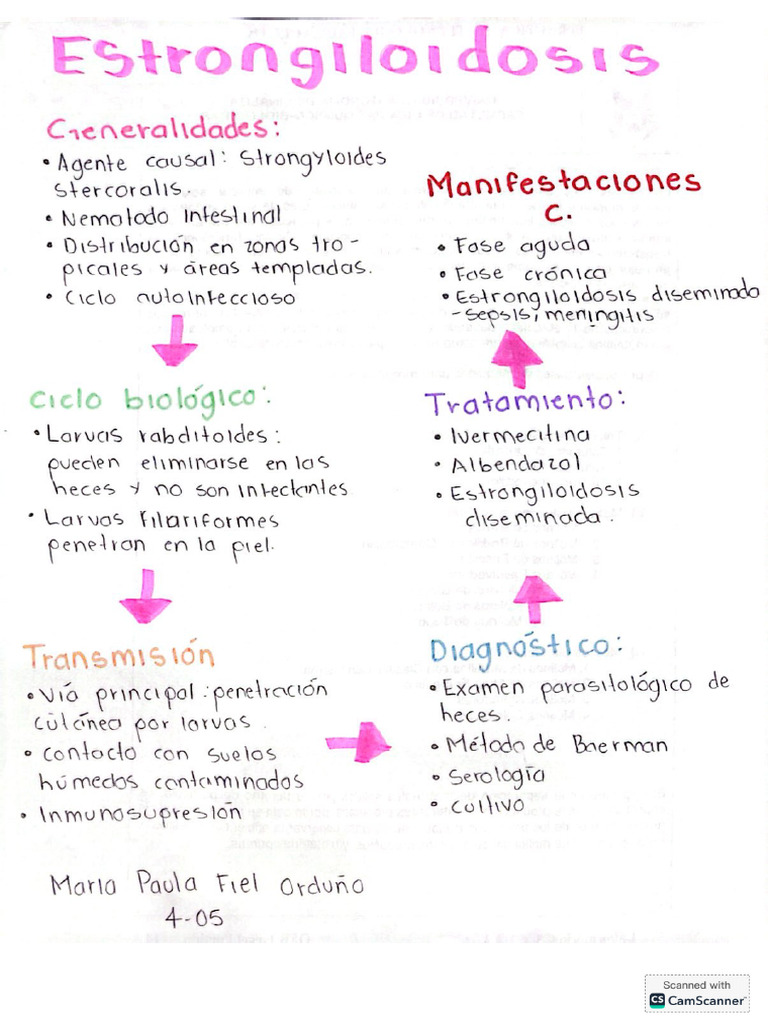 Estrongiloidosis
Generalidades:
• Agente causal: Strongyloides
stercoralis.
• Nematodo Intestinal
• Distribución en zonas tro-
picales y áreas templadas.
• Ciclo autoinfeccioso
Ciclo biológico:
• Larvas rabditoides:
pueden eliminarse en las
heces y no son infectantes
• Larvas filariformes
penetran en la piel.
Transmisión
• Vía principal: penetración
cutánea por larvas.
• Contacto con suelos
húmedos contaminados
• Inmunosupresión
Diagnóstico:
• Examen parasitológico de
heces.
• Método de Baerman
• Serología
• Cultivo
Tratamiento:
• Ivermecitina
• Albendazol
• Estrongiloidosis
diseminada.
Manifestaciones
C.
• Fase aguda
• Fase crónica
• Estrongiloidosis diseminado
-sepsis, meningitis
Maria Paula Fiel Orduño
4-05
Scanned with
CS CamScanner